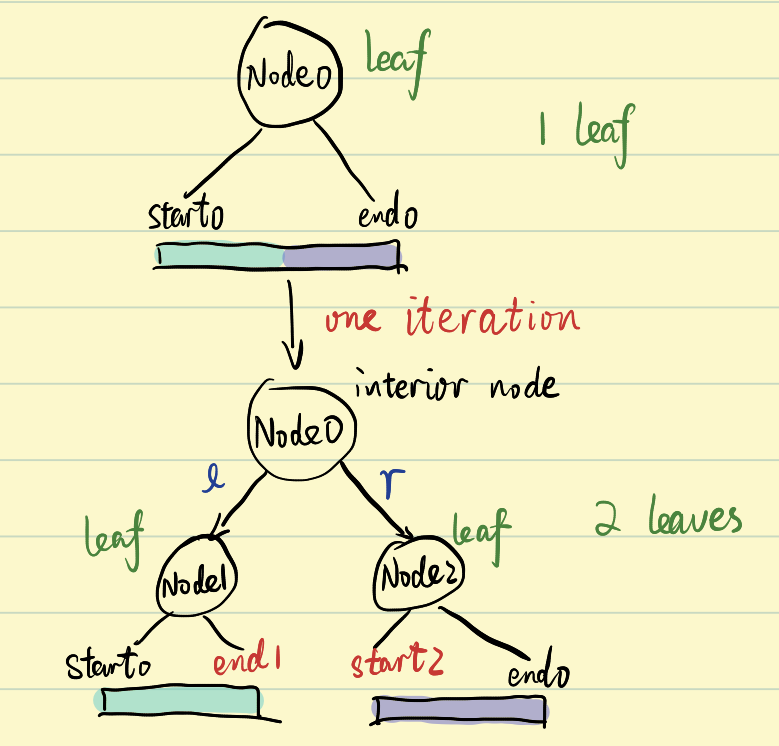 Node0 leaf
1 leaf
start0 end0
one iteration
interior node
Node0
l r
leaf leaf 2 leaves
Node1 Node2
start0 end1 start2 end0